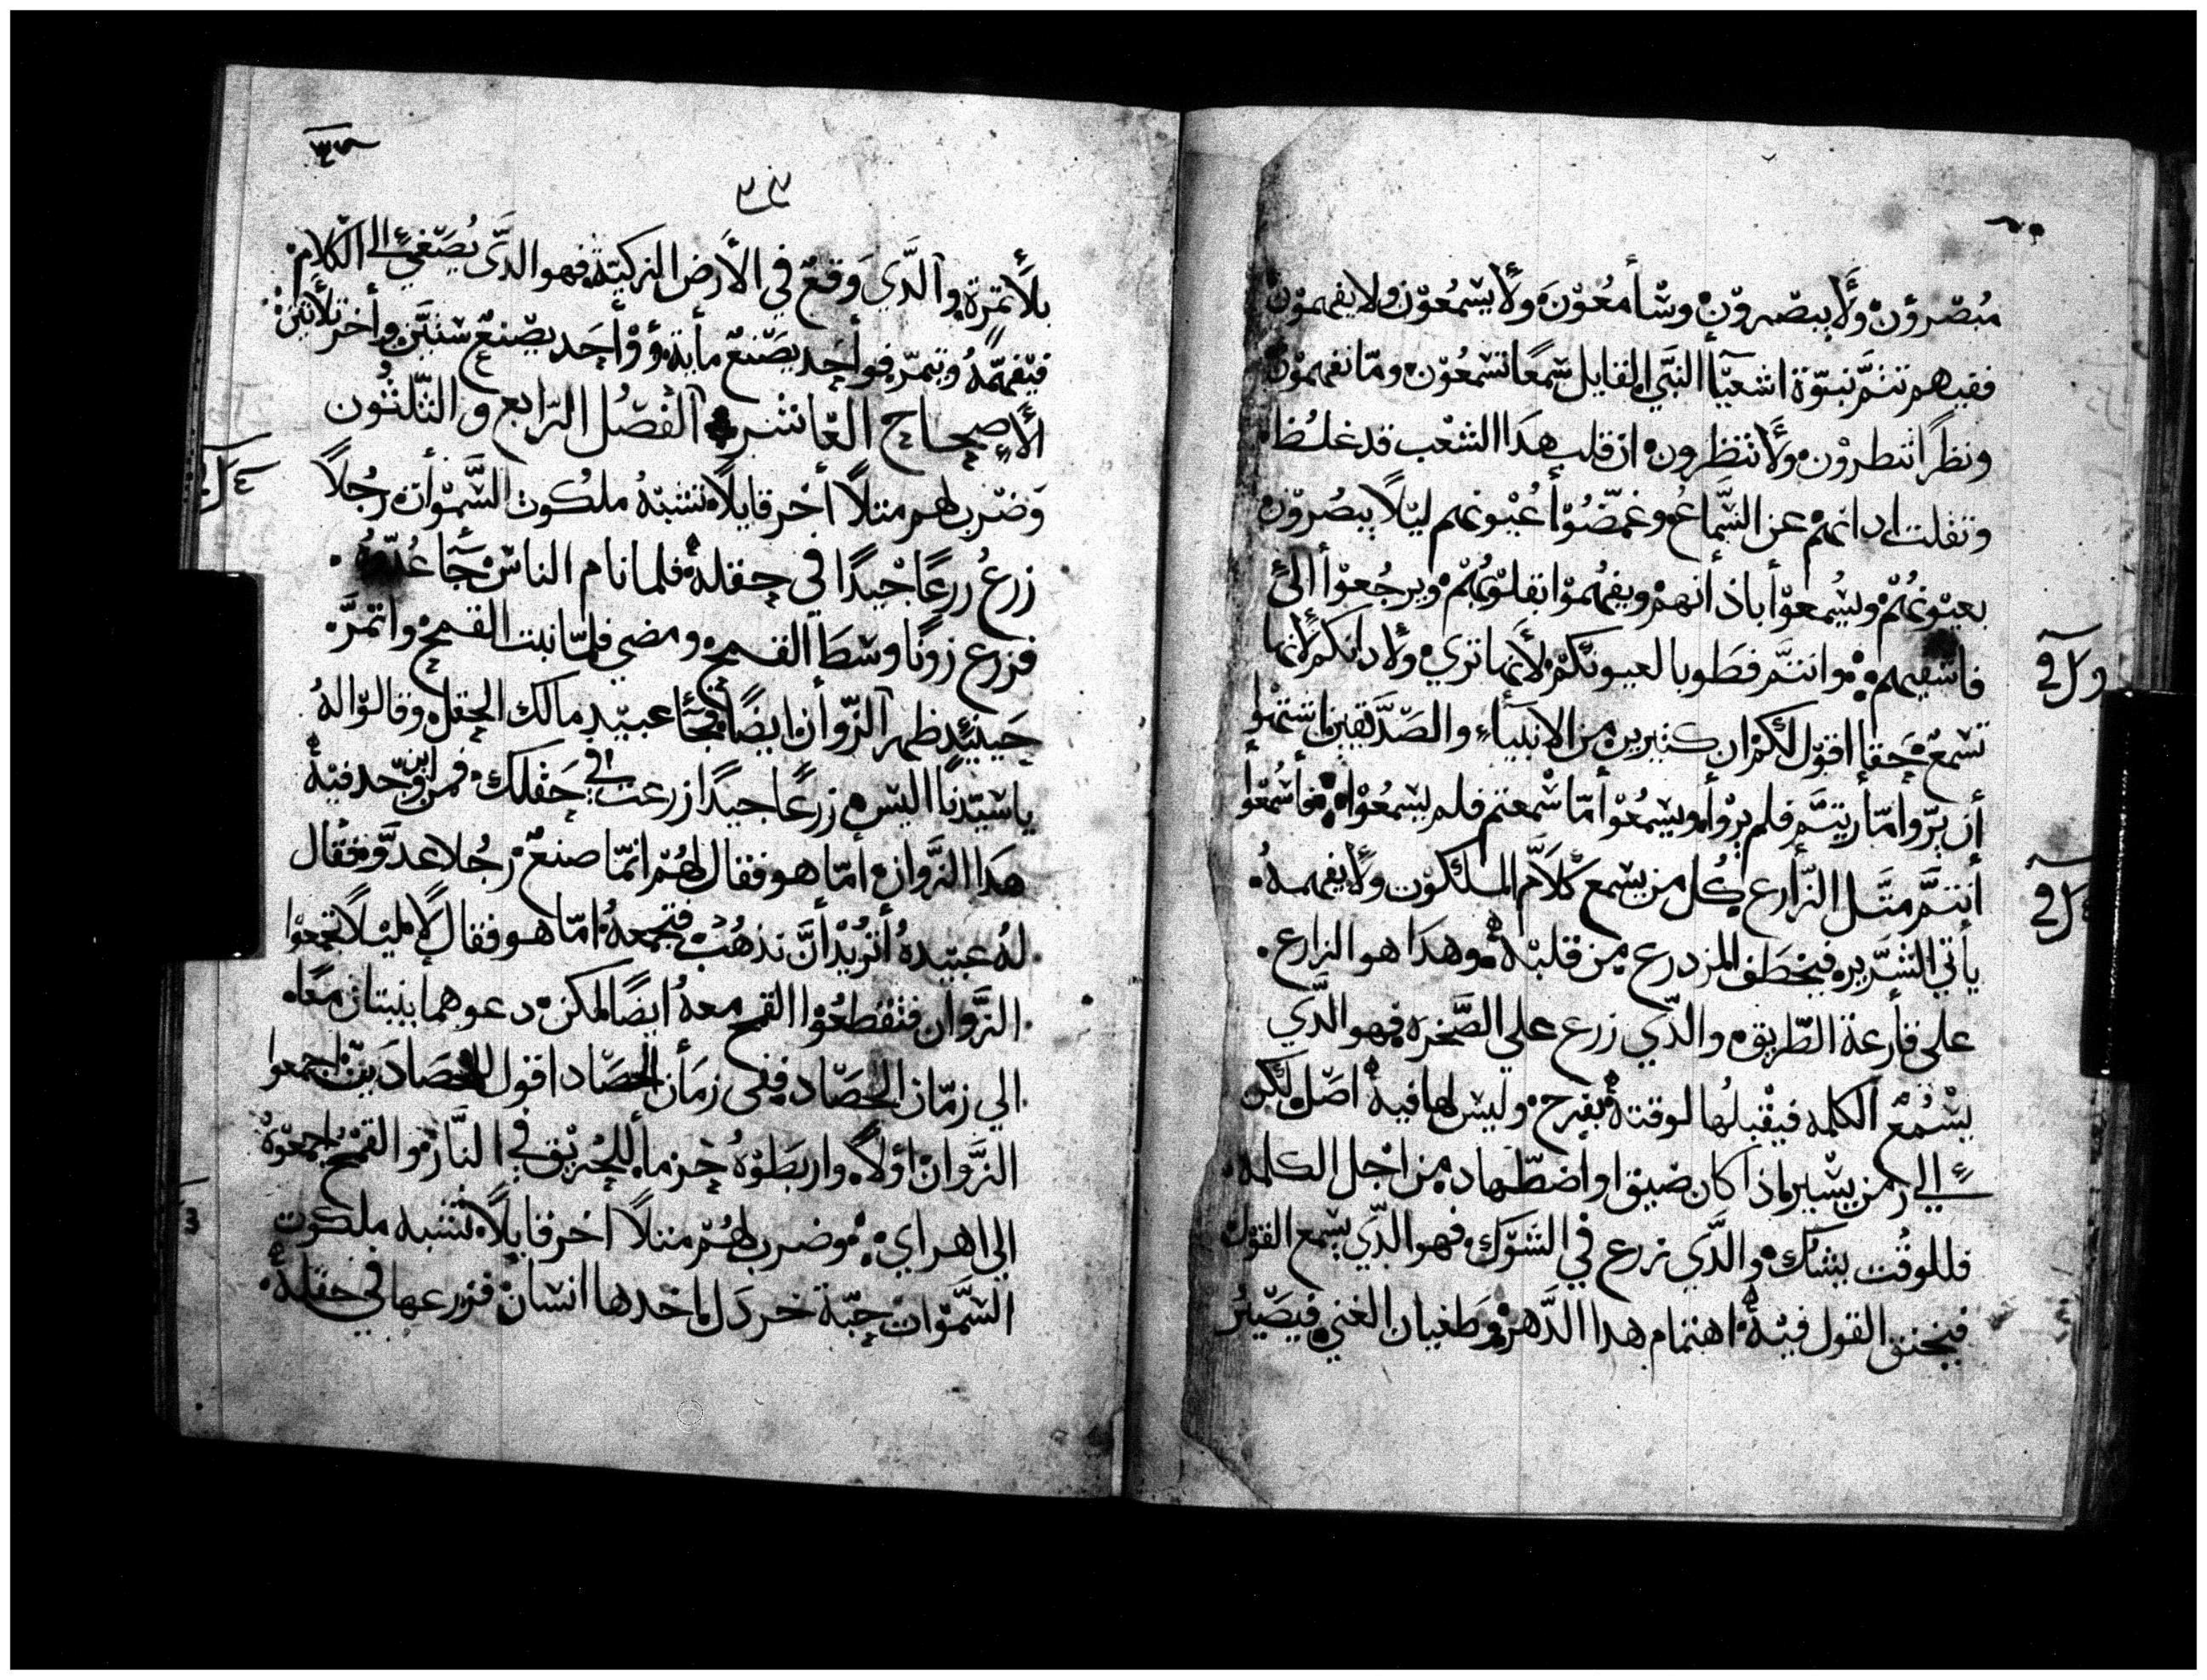 مُبْصّرؤن ولَأ يبصّرونْ وسْأمعُوْنَ ولَأ يسْمعُوْن ولا يفهموْن
ففيهم تتمَّ نبوّة اشعيَأ النبَي القايل سَّمعًا تسْمعُوْن ومّا تفهموْن
ونظرًا تنطروْن ولَأ تنظرون ان قلب هدَا الشعْب قد غلُظ
وتقلت ادانهمْ عن السَّمَاعُ وغمضُوْأ عُيْونهم ليّلًا يبصُروْن
بعيوْنهُمْ ويسُمعوْأ باذأنهمْ ويفهُموْا بقلوْبُهمْ ويرجُعوْأ الىَ
فاشفيهم ۰ وانتَّم فطَوبا لعيونكمْ لأنها تري ولادانكم لأنها
تسْمعْ حَقا اقوْل لكم ان كثيرين من الانبيآء والصَدَّيقين اشتهوْا
أن يرّوا مّا ريتَّم فلم يرْوأ ويسْمعُوْ أمّا سْمعتم فلم يسْمعُوْا ۰ فأسْمعوْا
أنتَّم متَّل الزّارع كُل من يسْمع كلَآم الملكوْت ولَأ يفهمهُ
يأتي الشّرّير فيخطَف المزدرع من قلبْهْ وهدَا هو الزارع
على قأرعة الطّريق والدّي زرع علي الصَّخره فهو الدَّي
يسْمُعْ الكلمه فيقْبلُها لوقتهْ بفرح وليس لها فيهْ اصَل لكن
الي زمن يسْير فاذا كان ضيق او أضطّهاد من اجل الكلمه
فللوقُت يشك والدَّي زرع في الشوّك فهو الدّي يسْمع القوْل
فيخنق القول فيْهْ اهتمام هدا الدَّهرْ وطَغيان الغني فيصَيْر
وك في
ك في
٣٤
بلَأ تمرة وآلدَّي وَقعْ في الأَرض الزكيّة فهو الدَّى يُصَغيْ الى الكلام
فيْفهمُهُ وَيتمرّ فوأحَد يصَنعْ مأية وَوْأحَد يصْنعْ ستيَّن وأخر تلأتين
الأصحاح العَاشر آلفصُل الرّابع والتّلتُون
وَضرب لهم متلًا أخر قايلًا تشبّهُ ملكُوت السَّموْأت رجُلًا
زرعُ زرعًا جْيدًا في حقلهْ فلما نام الناسْ جَآ عُدّوهُ
فزرع زونًا وسْطَ القمح ومضي فلمّا نبت القمحْ واتمرَّ
حَينئِد ظهر آلزّوأن ايضًا فجَأ عبيْد مالك الحقل وقالوْا لهُ
يا سَيّدنَا اليس زرعًا جيدًا زرعت في حَقلك فمن اين وُجد فيْهْ
هدَا الزَّوان أمّا هو فقال لهُمَّ انمّا صنعْ رجُلا عدَّو فقال
لهُ عبيْدهُ أتريْد أنَّ ندهُبْ فنجمعهُ امّا هو فقال لا ليْلًا تجمعوْا
الزَّوان فتقطعُوْا القمح معهُ ايضًا لكن دعوهما ينبتان معًا
الي زمّان الحصّاد ففي زمَأن الحصَاد اقول للحصَاديْن اجمعوا
الزَّوان اوْلًا واربَطوْهُ حْزمأ للحُريْق في النّار والقمْحْ اجمعوْهُ
الى اهراي ۰ وضرب لهُمّ متلًا اخر قايلًا تشبه ملكوت
السَّموّاتْ حبّة خردَل اخدها انسْان فزرعها في حقلهْ